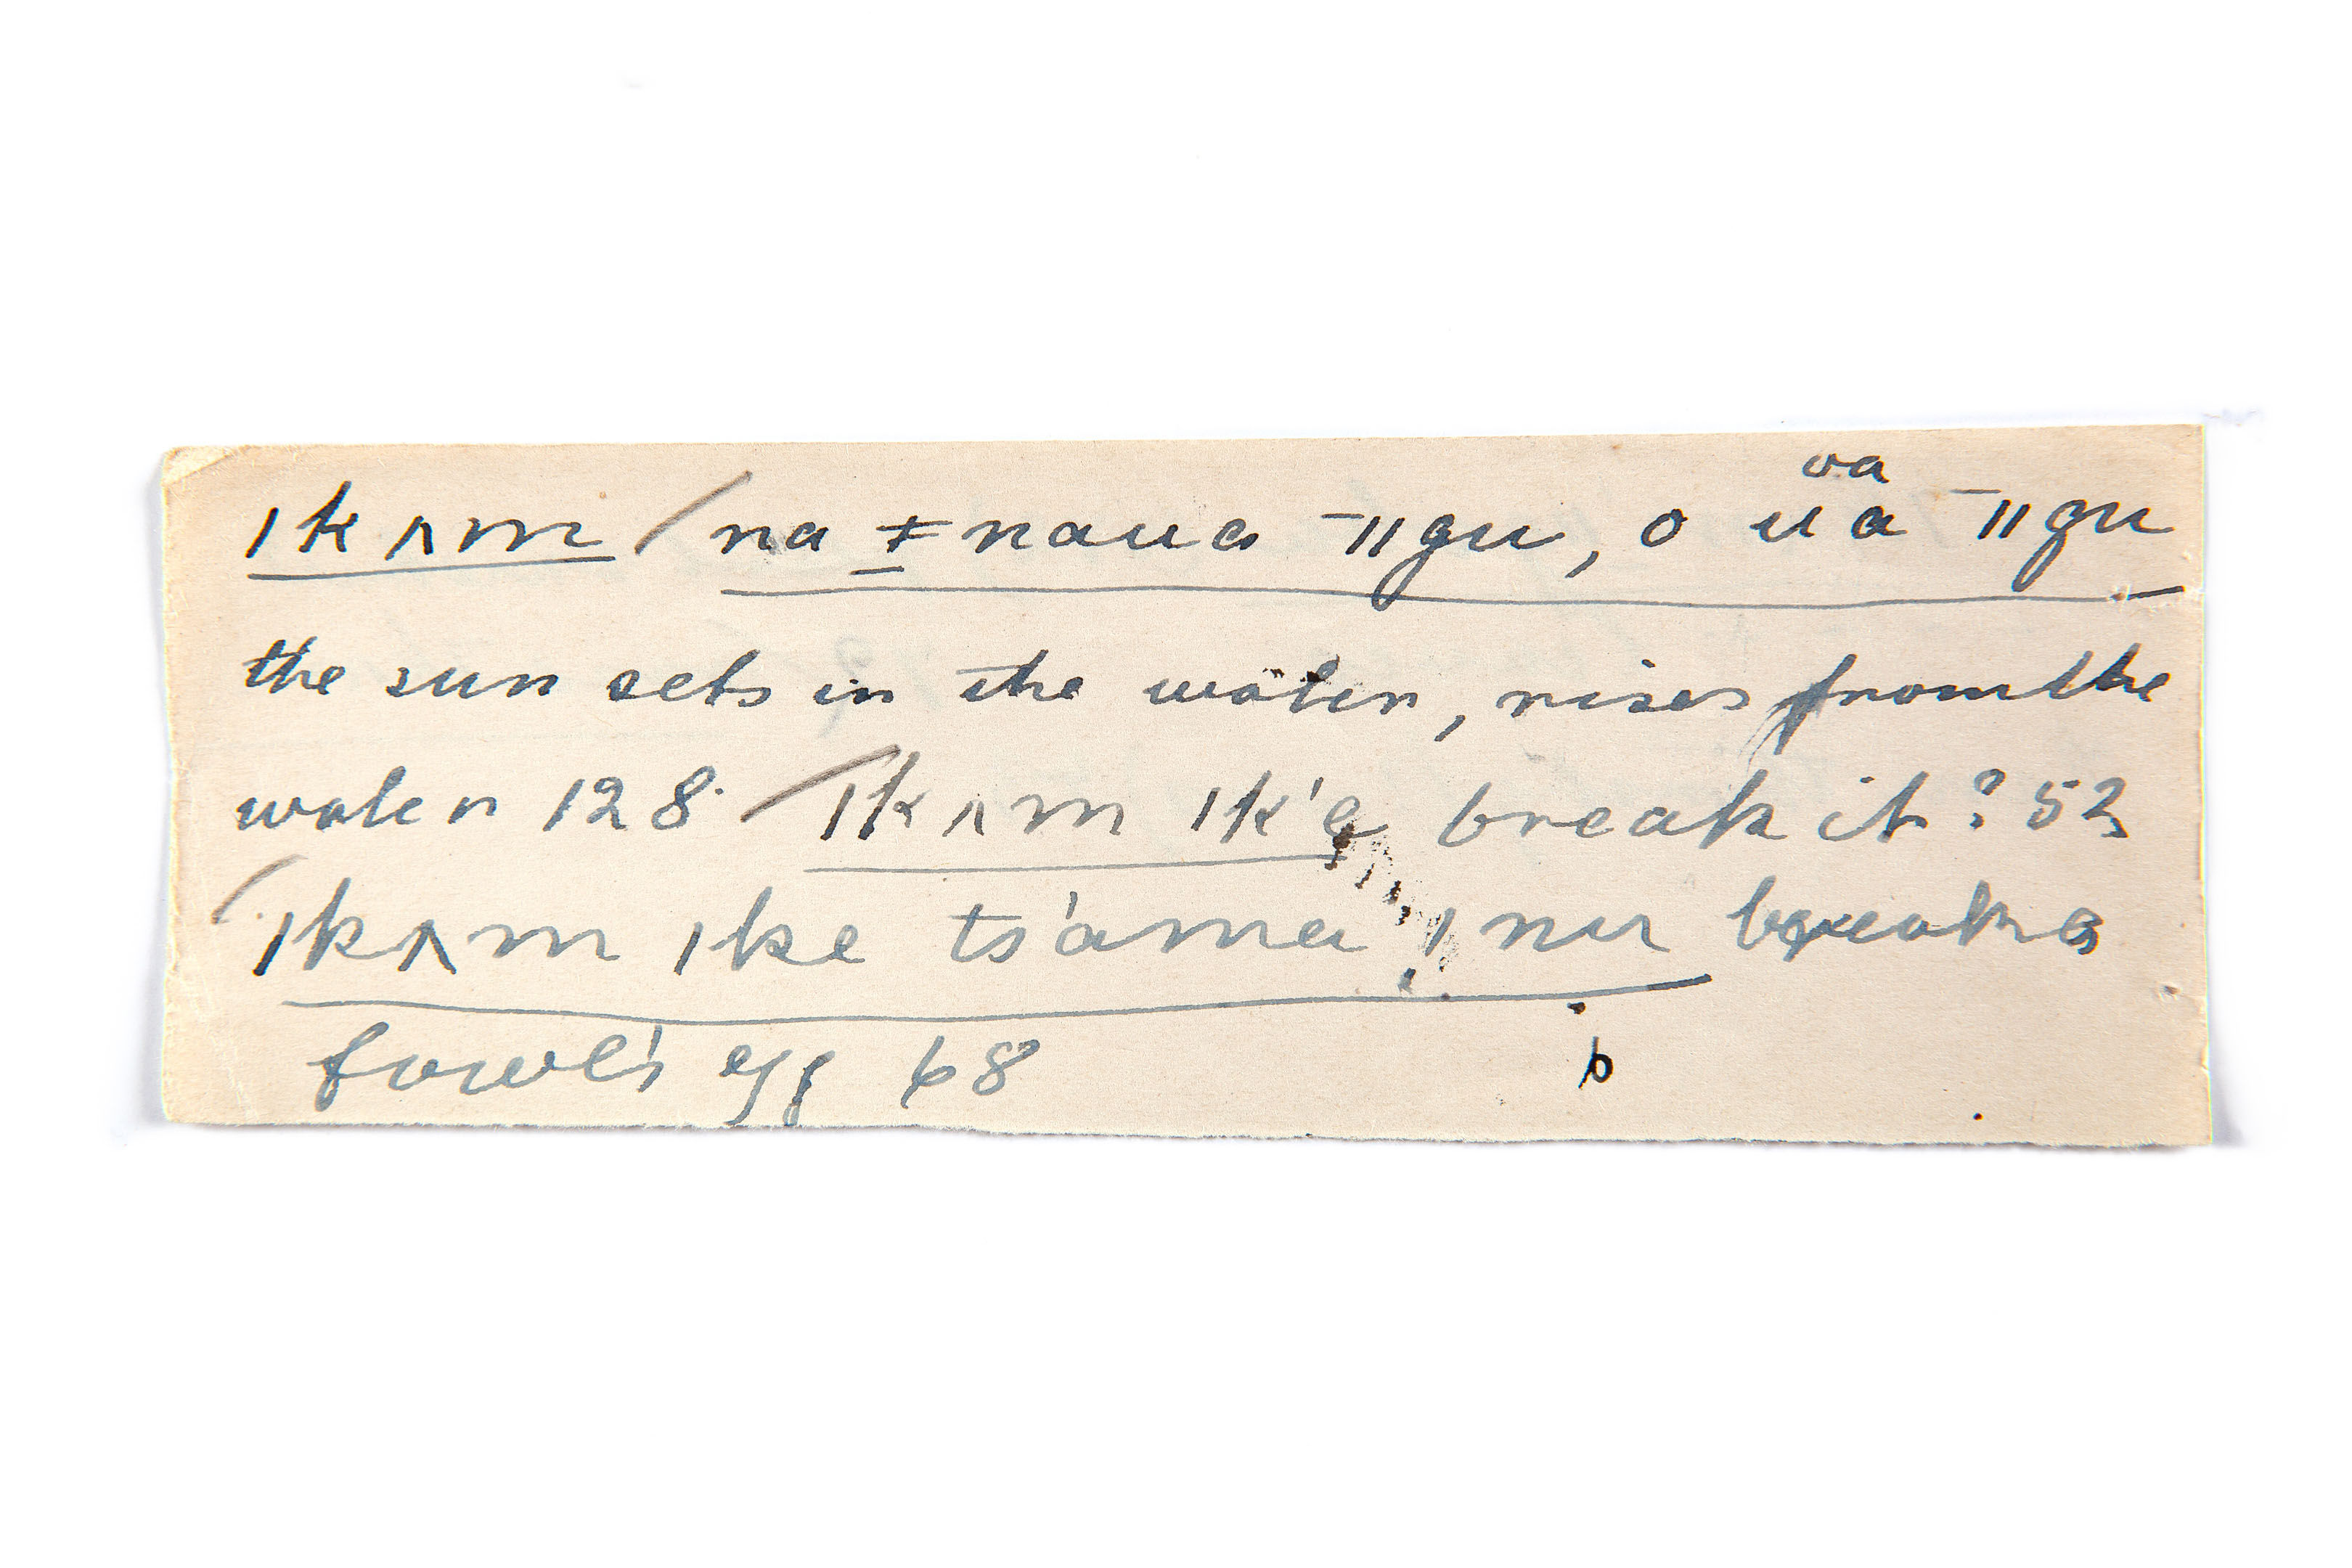 oa
ǀkʌm / na ǂnaua ‾ǁgu, o ua ‾ǁgu
the sun sets in the water, rises from the
water 128 ǀkʌm ǀk'e break it? 52
ǀkʌm ǀke ts'ama ǃnu break a
fowl's egg 68
b